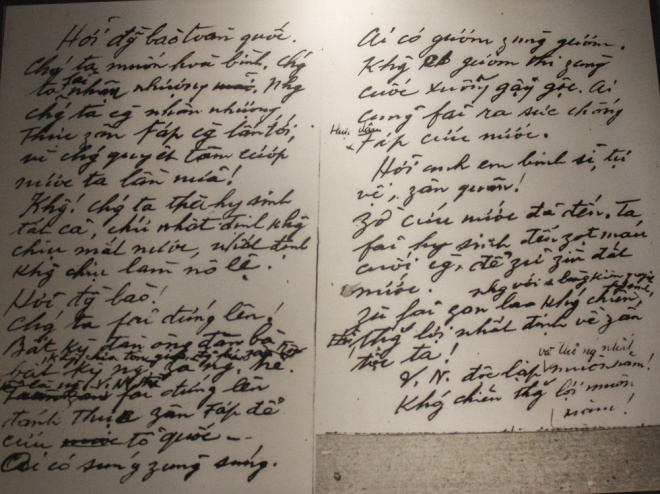 Hỡi đg̃ bào toàn quốc.
Chg ta muốn hoà bình, chg
ta fải nhân nhượng. Nhg
chg ta cg nhân nhượng
Thực zân Fáp cg lấn tới,
vì chg quyết tâm cướp
nước ta lần nữa!
Khg! chg ta thà hy sinh
tất cả, chứ nhất định khg
chịu mất nước, nhất định
khg chịu làm nô lệ.
Hỡi đg bào!
Chg ta fải đứng lên!
Bất kỳ đàn ông đàn bà
bất kỳ ng. zà ng. trẻ.
fải đứng lên
đánh thực zân Fáp để
cứu tổ quốc
Ai có súng zùng súng.
Ai có gươm zùng gươm,
Khg có gươm thì zùng
cuốc xuổng gậy gộc. Ai
cũng fải ra sức chống
Fáp cứu nước.
Hỡi anh em binh sĩ, tự
vệ, zân quân!
Zờ cứu nước đã đến. Ta
fải hy sinh đến zọt máu
cuối cg, để zữ zìn đất
nước.
Zù fải zan lao khg chiến,
thg lợi nhất định về zân
tộc ta!
V. N. độc lập
và thống nhất
muôn năm!
Khg chiến thg lợi muôn
năm!